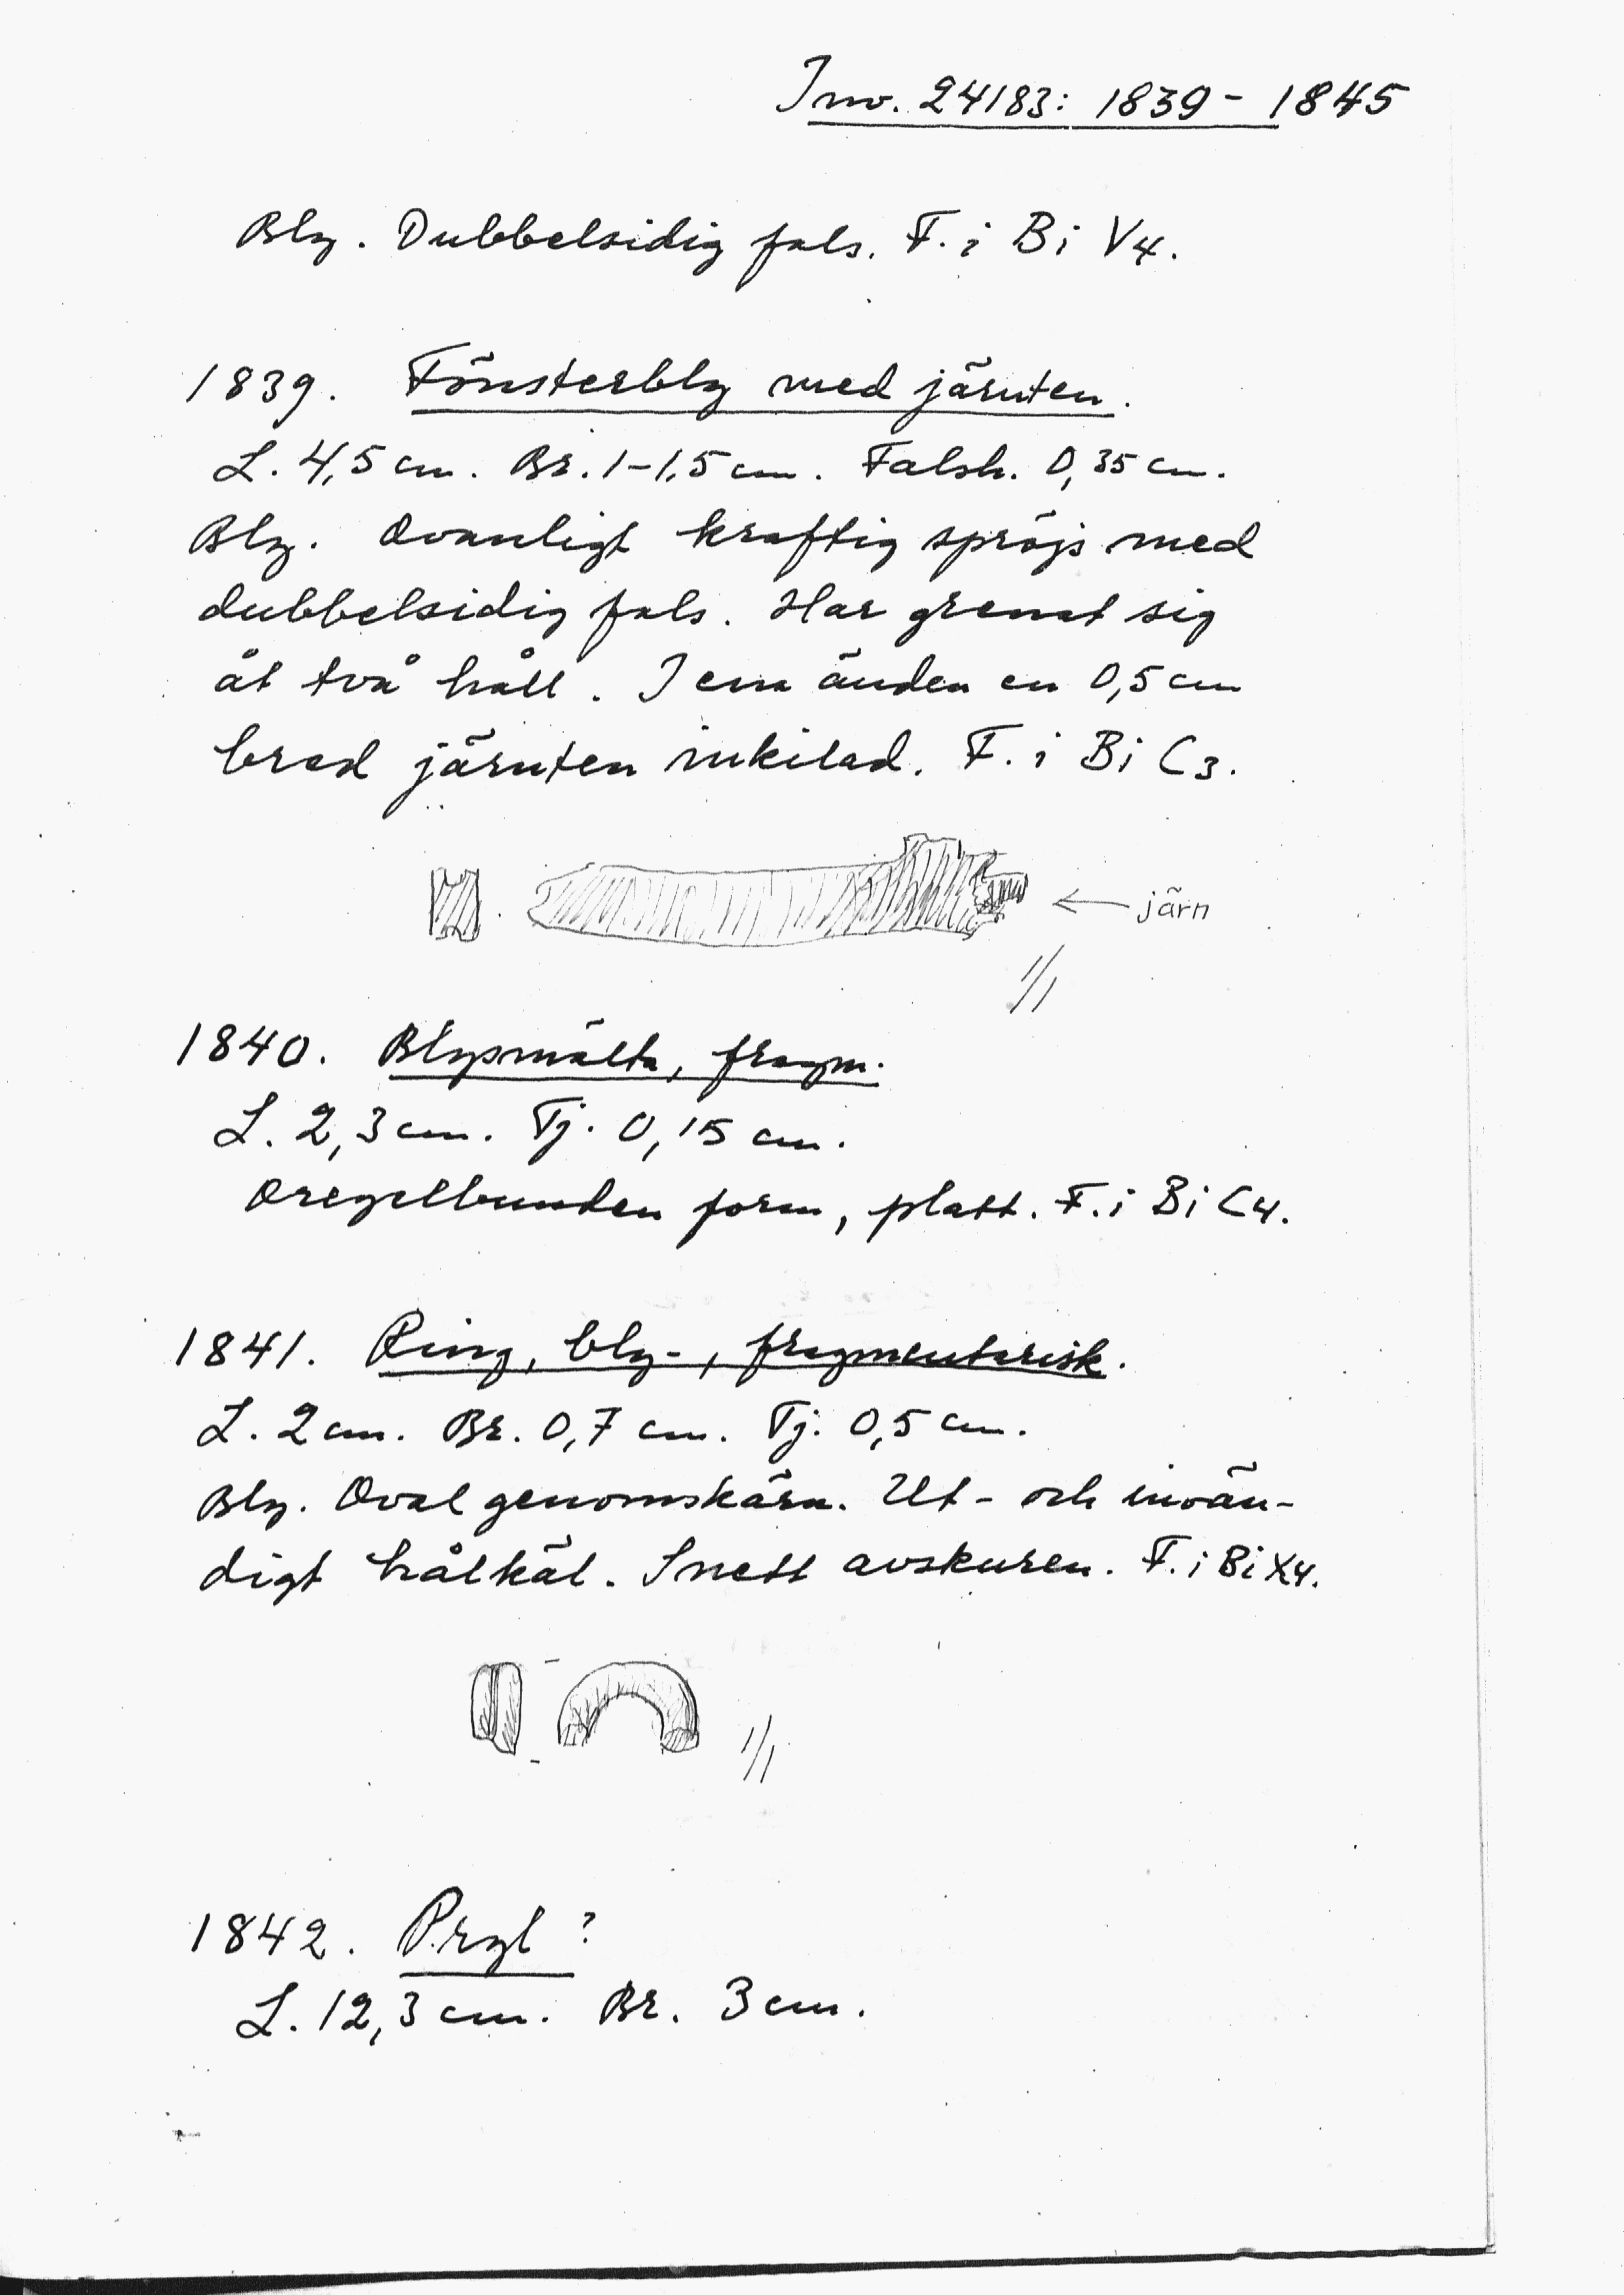 Inv. 24183: 1839 - 1845
Bly. Dubbelsidig fals. F. i Bi V4.
1839. Fönsterbly med järnten.
L. 4,5 cm. Br. 1-1,5 cm. Falsh. 0,35 cm.
Bly. Ovanligt kraftig spröjs med
dubbelsidig fals. Har grenat sig
åt två håll. I ena änden en 0,5 cm
bred järnten inkilad. F. i Bi C3.
← järn
1/1
1840. Blysmälta, fragm.
L. 2,3 cm. Tj. 0,15 cm.
Oregelbunden form, platt. F. i Bi C4.
1841. Ring, bly-, fragmentarisk.
L. 2 cm. Br. 0,7 cm. Tj. 0,5 cm.
Bly. Oval genomskärn. Ut- och invän-
digt hålkäl. Snett avskuren. F. i Bi X4.
1/1
1842. Pryl ?
L. 12,3 cm. Br. 3 cm.